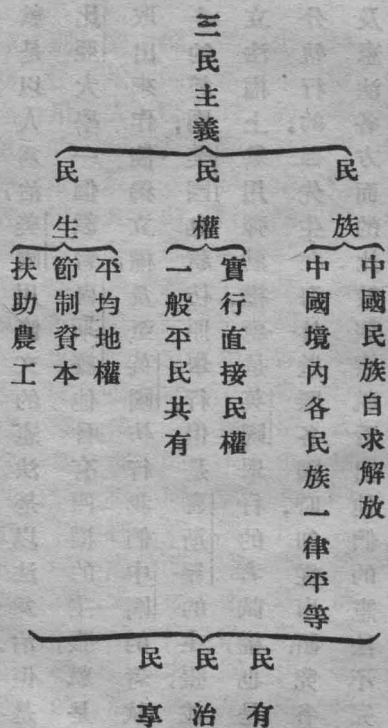 三民主義
民族
中國民族自求解放
中國境內各民族一律平等
民權
實行直接民權
一般平民共有
民生
平均地權
節制資本
扶助農工
民有
民治
民享